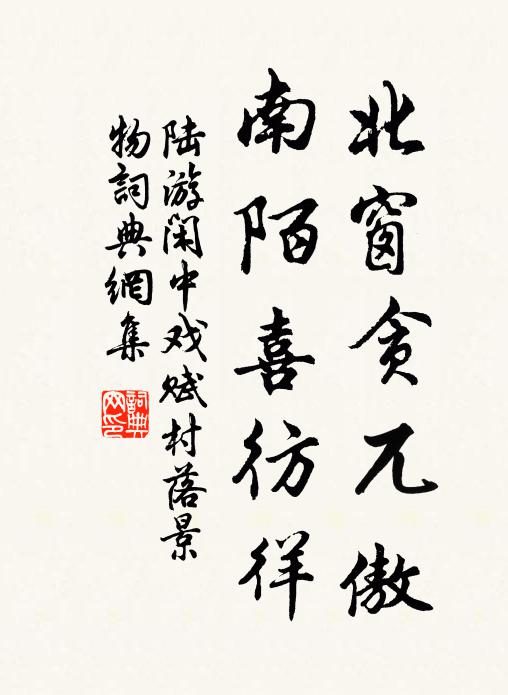 北窗贪兀傲
南陌喜彷徉
陆游闲中戏赋村落景
物词典網集
詞典网印